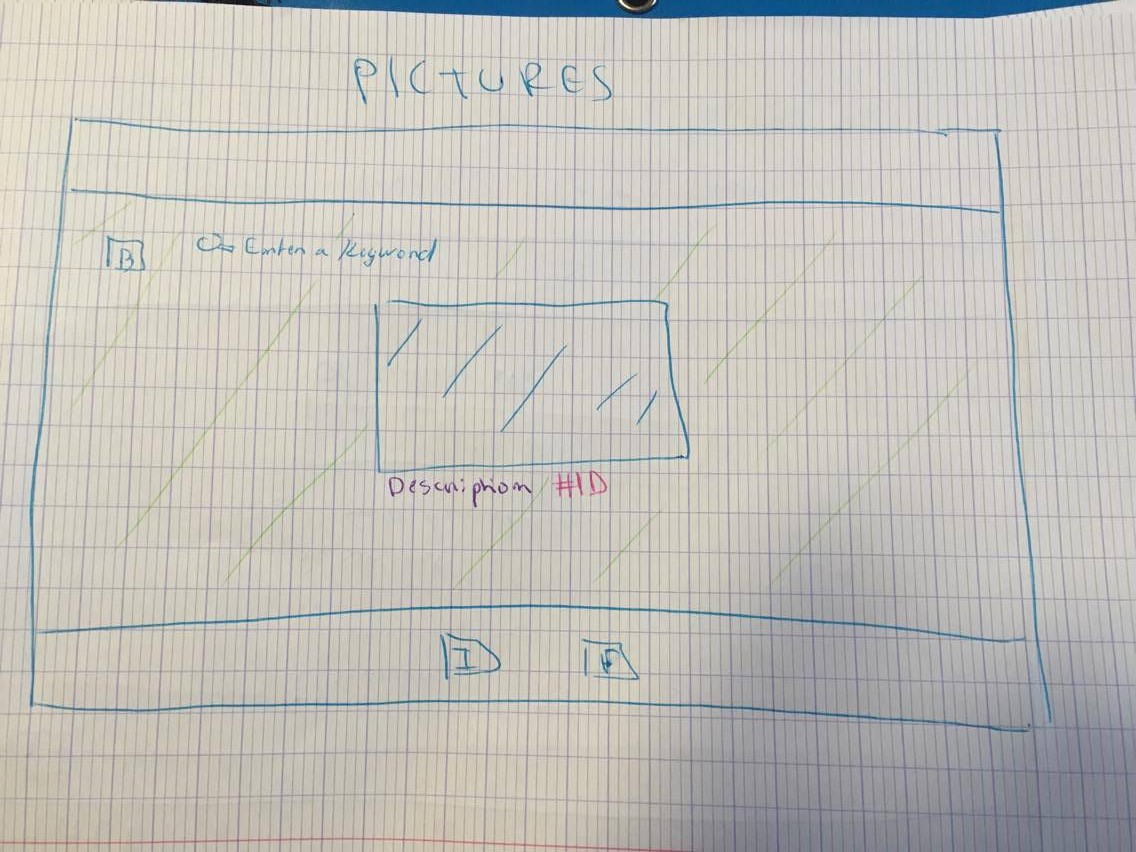 PICTURES
B Enter a Keyword
Description #ID
I F